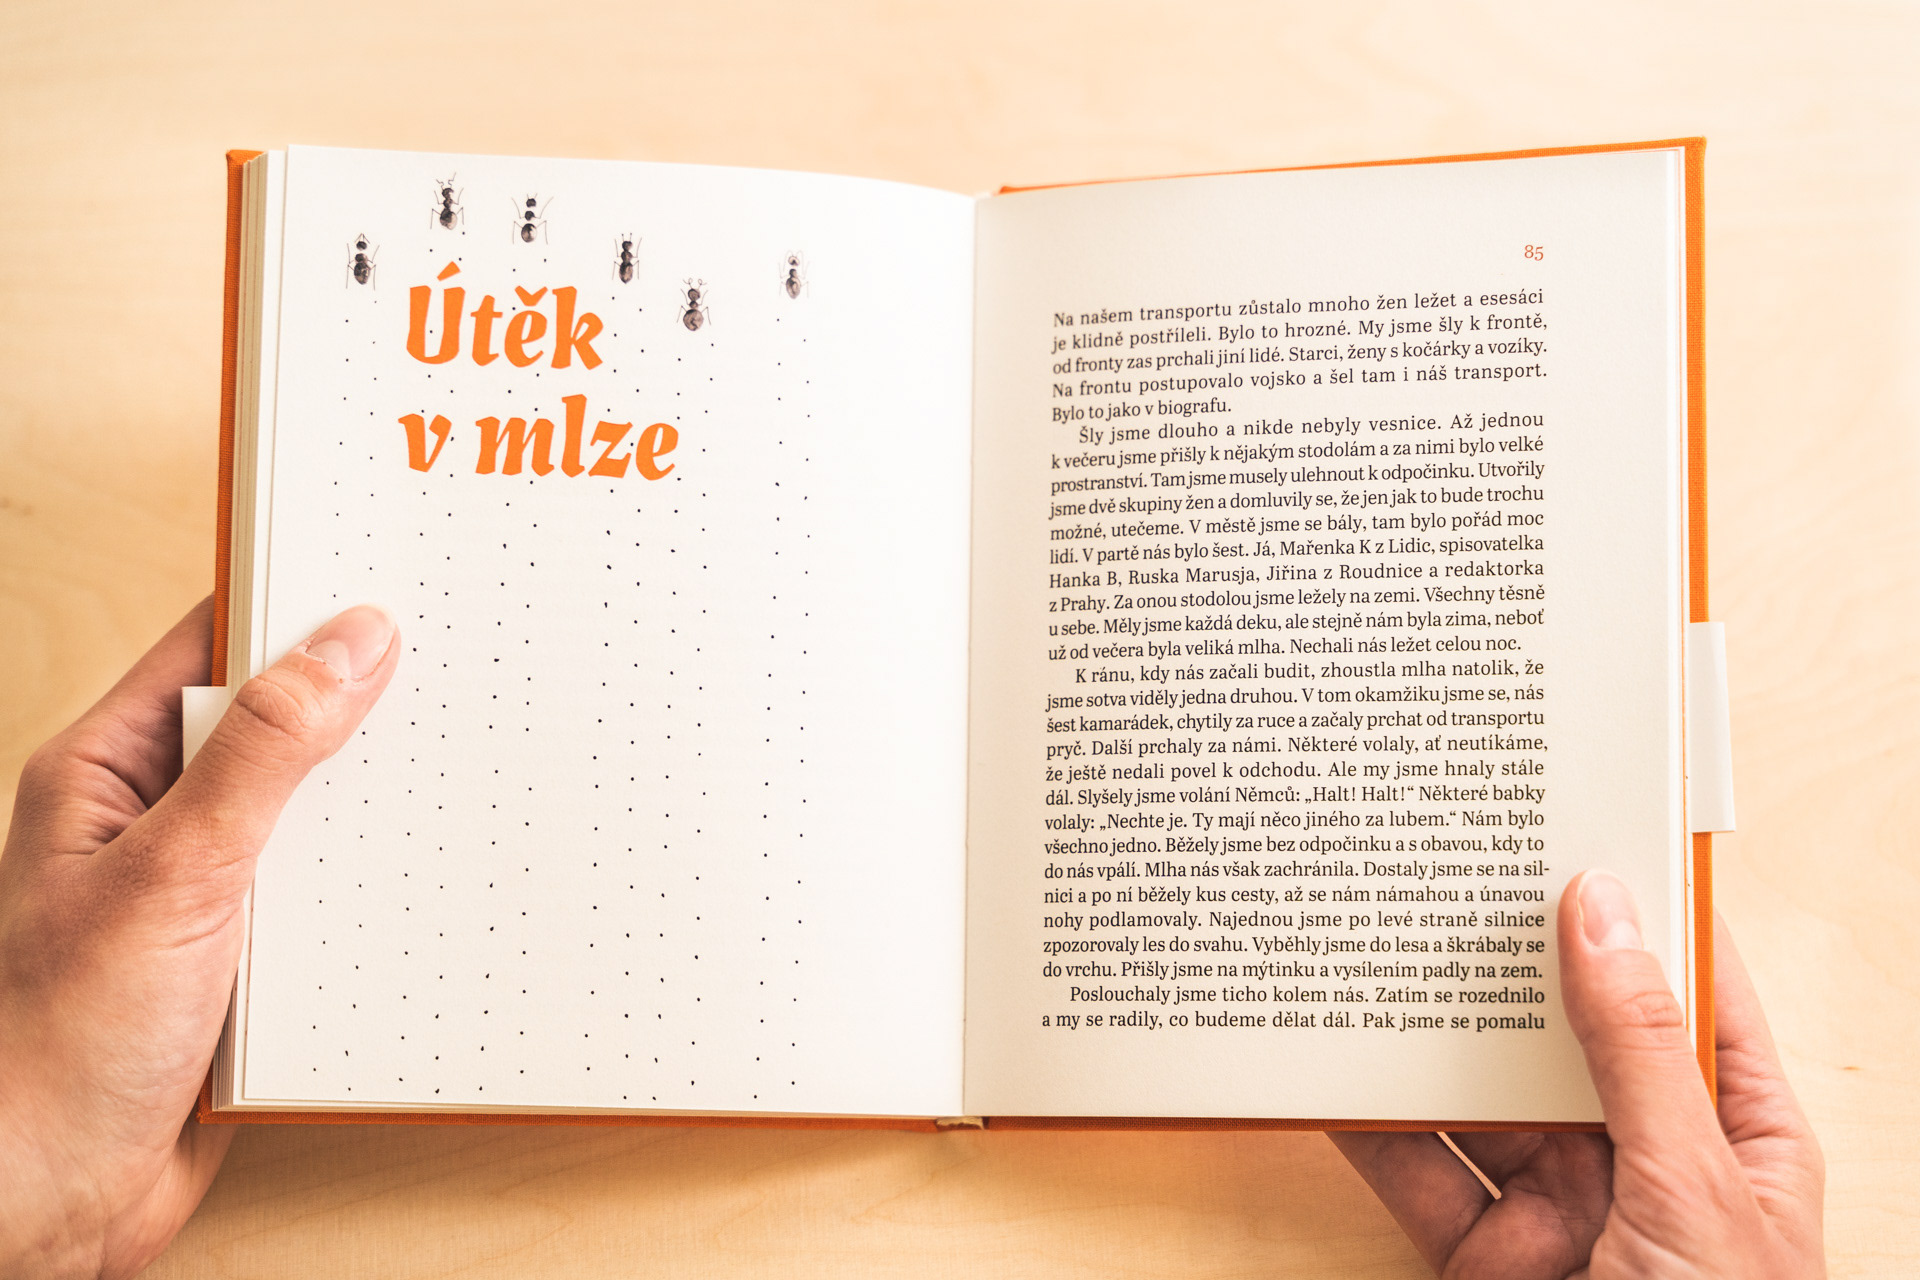 Útěk
v mlze
85
Na našem transportu zůstalo mnoho žen ležet a esesáci
je klidně postříleli. Bylo to hrozné. My jsme šly k frontě,
od fronty zas prchali jiní lidé. Starci, ženy s kočárky a vozíky.
Na frontu postupovalo vojsko a šel tam i náš transport.
Bylo to jako v biografu.
Šly jsme dlouho a nikde nebyly vesnice. Až jednou
k večeru jsme přišly k nějakým stodolám a za nimi bylo velké
prostranství. Tam jsme musely ulehnout k odpočinku. Utvořily
jsme dvě skupiny žen a domluvily se, že jen jak to bude trochu
možné, utečeme. V městě jsme se bály, tam bylo pořád moc
lidí. V partě nás bylo šest. Já, Mařenka K z Lidic, spisovatelka
Hanka B, Ruska Marusja, Jiřina z Roudnice a redaktorka
z Prahy. Za onou stodolou jsme ležely na zemi. Všechny těsně
u sebe. Měly jsme každá deku, ale stejně nám byla zima, neboť
už od večera byla veliká mlha. Nechali nás ležet celou noc.
K ránu, kdy nás začali budit, zhoustla mlha natolik, že
jsme sotva viděly jedna druhou. V tom okamžiku jsme se, nás
šest kamarádek, chytily za ruce a začaly prchat od transportu
pryč. Další prchaly za námi. Některé volaly, ať neutíkáme,
že ještě nedali povel k odchodu. Ale my jsme hnaly stále
dál. Slyšely jsme volání Němců: „Halt! Halt!“ Některé babky
volaly: „Nechte je. Ty mají něco jiného za lubem.“ Nám bylo
všechno jedno. Běžely jsme bez odpočinku a s obavou, kdy to
do nás vpálí. Mlha nás však zachránila. Dostaly jsme se na sil-
nici a po ní běžely kus cesty, až se nám námahou a únavou
nohy podlamovaly. Najednou jsme po levé straně silnice
zpozorovaly les do svahu. Vyběhly jsme do lesa a škrábaly se
do vrchu. Přišly jsme na mýtinku a vysílením padly na zem.
Poslouchaly jsme ticho kolem nás. Zatím se rozednilo
a my se radily, co budeme dělat dál. Pak jsme se pomalu